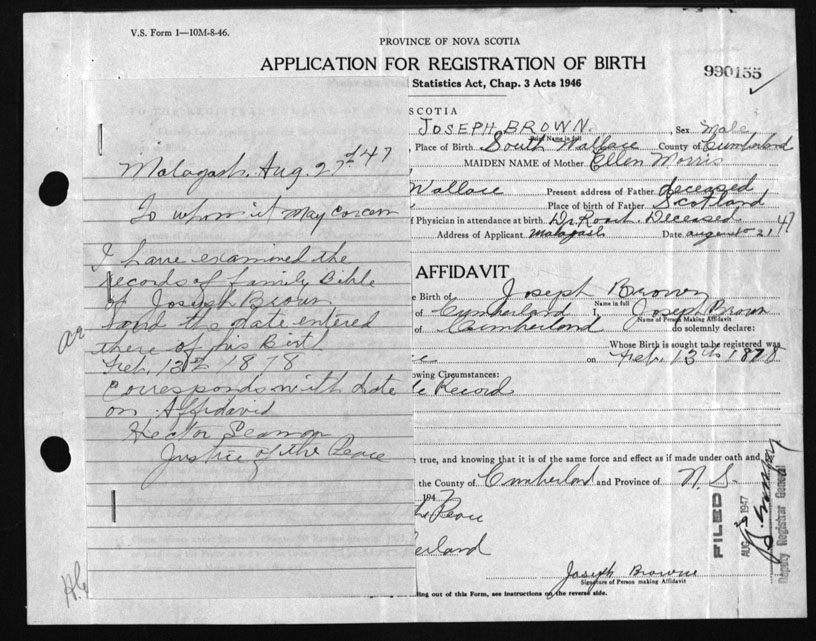 V.S. Form 1—10M-8-46.
PROVINCE OF NOVA SCOTIA
APPLICATION FOR REGISTRATION OF BIRTH
990155
Statistics Act, Chap. 3 Acts 1946
SCOTIA
JOSEPH BROWN. Sex Male
Print Name in full
Place of Birth South Wallace County of Cumberland
MAIDEN NAME of Mother Ellen Morris
Wallace Present address of Father deceased
Place of birth of Father Scotland
f Physician in attendance at birth Dr. Deceased
Address of Applicant Malagash Date august 21 47
AFFIDAVIT
e Birth of Joseph Brown
Name in full
of Cumberland I, Joseph Brown
Name of Person Making Affidavit
of Cumberland do solemnly declare:
Whose Birth is sought to be registered was
on Feb. 13th 1878
owing Circumstances:
le Record
e true, and knowing that it is of the same force and effect as if made under oath and
the County of Cumberland and Province of N. S.
194 7
the Peace
erland
Joseph Browne
Signature of Person making Affidavit
ling out of this Form, see instructions on the reverse side.
FILED
AUG 1947
Deputy Registrar General
Malagash, Aug. 27th 47
To whom it may concern
I have examined the
records of family Bible
of Joseph Brown
and the date entered
there of his Birt
Feb, 13th 1878
Corresponds with date
on Affidavid
Hector Seaman
Justice of the Peace